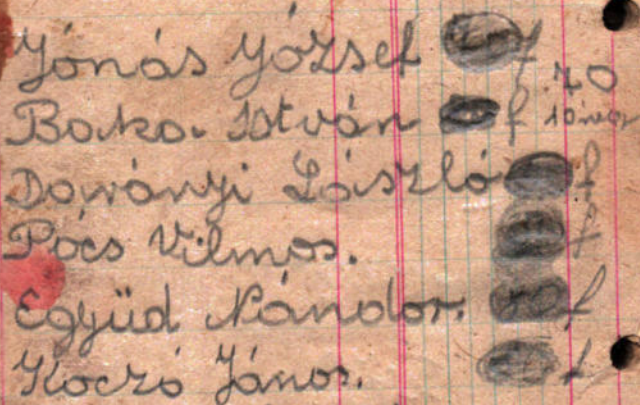 Jónás József f
70
Baka István f
Dományi László f
Pócs Vilmos. f
Együd Nándor. f
Koczó János. f